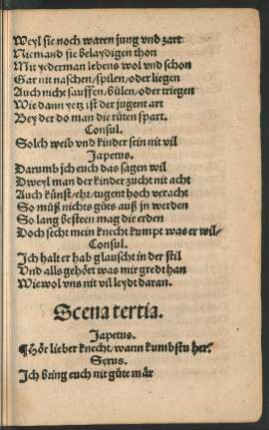 Weyl sie noch waren jung vnd zart
Niemand sie belaydigen thon
Mit yederman lebens wol vnd schon
Gar nit naschen/spilen/oder liegen
Auch nicht sauffen/bůlen/oder triegen
Wie dann yetz ist der jugent art
Bey der do man die růten spart.
Consul.
Solch weib vnd kinder sein nit vil
Japetus.
Darumb jch euch das sagen wil
Dweyl man der kinder zucht nit acht
Auch künst/eht/tugent hoch veracht
So můß nichts gůts auß jn werden
So lang besteen mag die erden
Doch secht mein knecht kumpt was er wil/
Consul.
Ich halt er hab glauscht in der stil
Vnd alls gehört was mir gredt han
Wiewol vns nit vil leydt daran.
Scena tertia.
Japetus.
¶Hör lieber knecht/wann kumbstu her.
Seruus.
Ich bring euch nit gůte mär